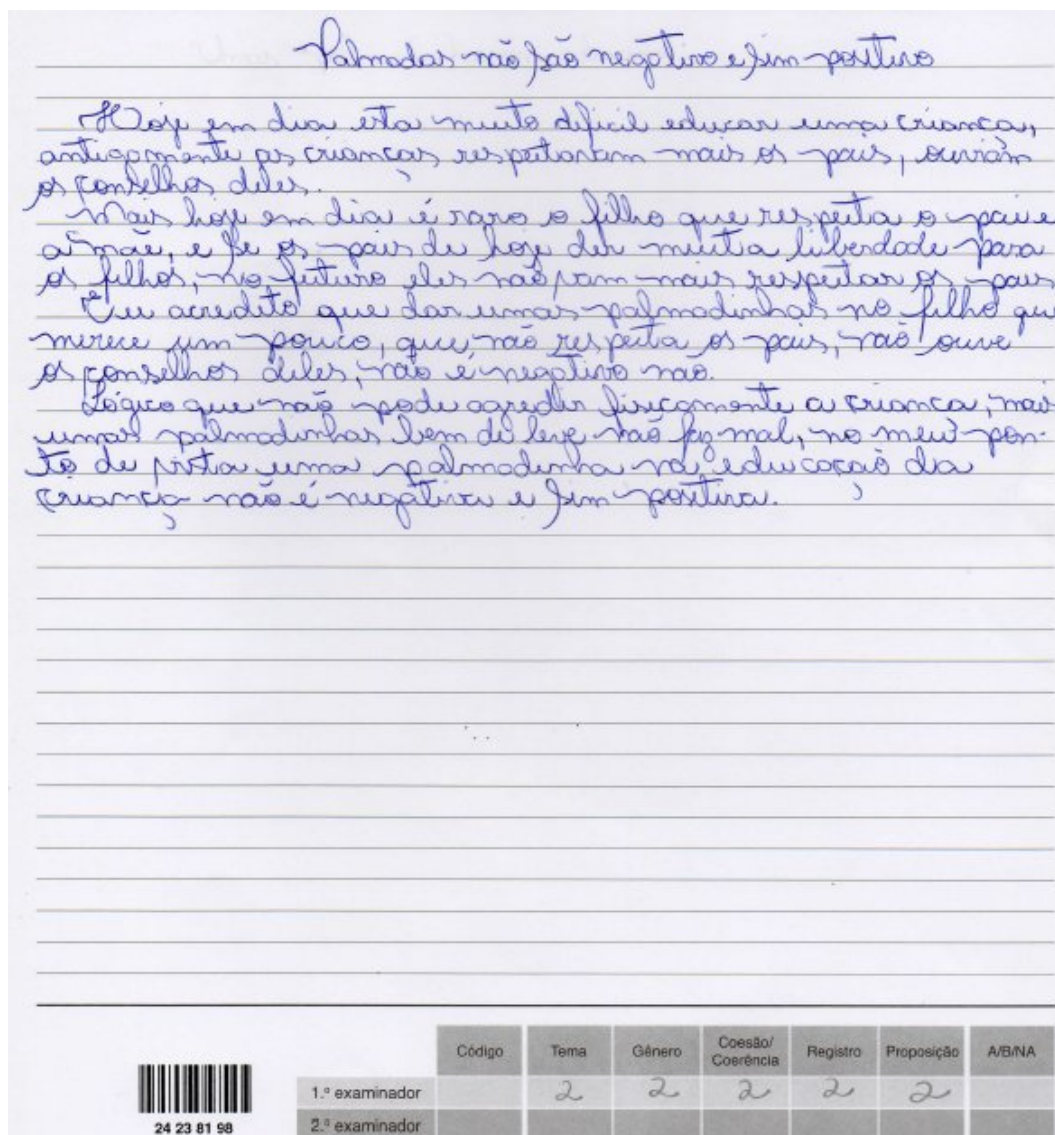 Palmadas não são negativo e sim positivo
Hoje em dia esta muito dificil educar uma criança,
antigamente as crianças respeitavam mais os pais, ouviam
os conselhos deles.
Mais hoje em dia é raro o filho que respeita o pai e
a mãe, e se os pais de hoje der muita liberdade para
os filhos, no futuro eles não vam mais respeitar os pais
Eu acredito que dar umas palmadinhas no filho que
merece um pouco, que não respeita os pais, não ouve
os conselhos deles, não e negativo não.
Lógico que não pode agredir fisicamente a criança, mais
umas palmadinhas bem de leve não faz mal, no meu pon-
to de vista uma palmadinha na educação da
criança não é negativa e sim positiva.
Código Tema Gênero Coesão/Coerência Registro Proposição A/B/NA
1.º examinador 2 2 2 2 2
2.º examinador
24 23 81 98